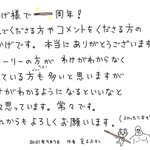 げ様で一周年！
てくださる方やコメントをくださる方の
かげです。本当にありがとうございます
ーリーの方が わけがわからなく
ている方も多いと思いますが
けがわかるようになるといいなと
思っています。常々です。
からもよろしくお願いします。
2021年9月7日